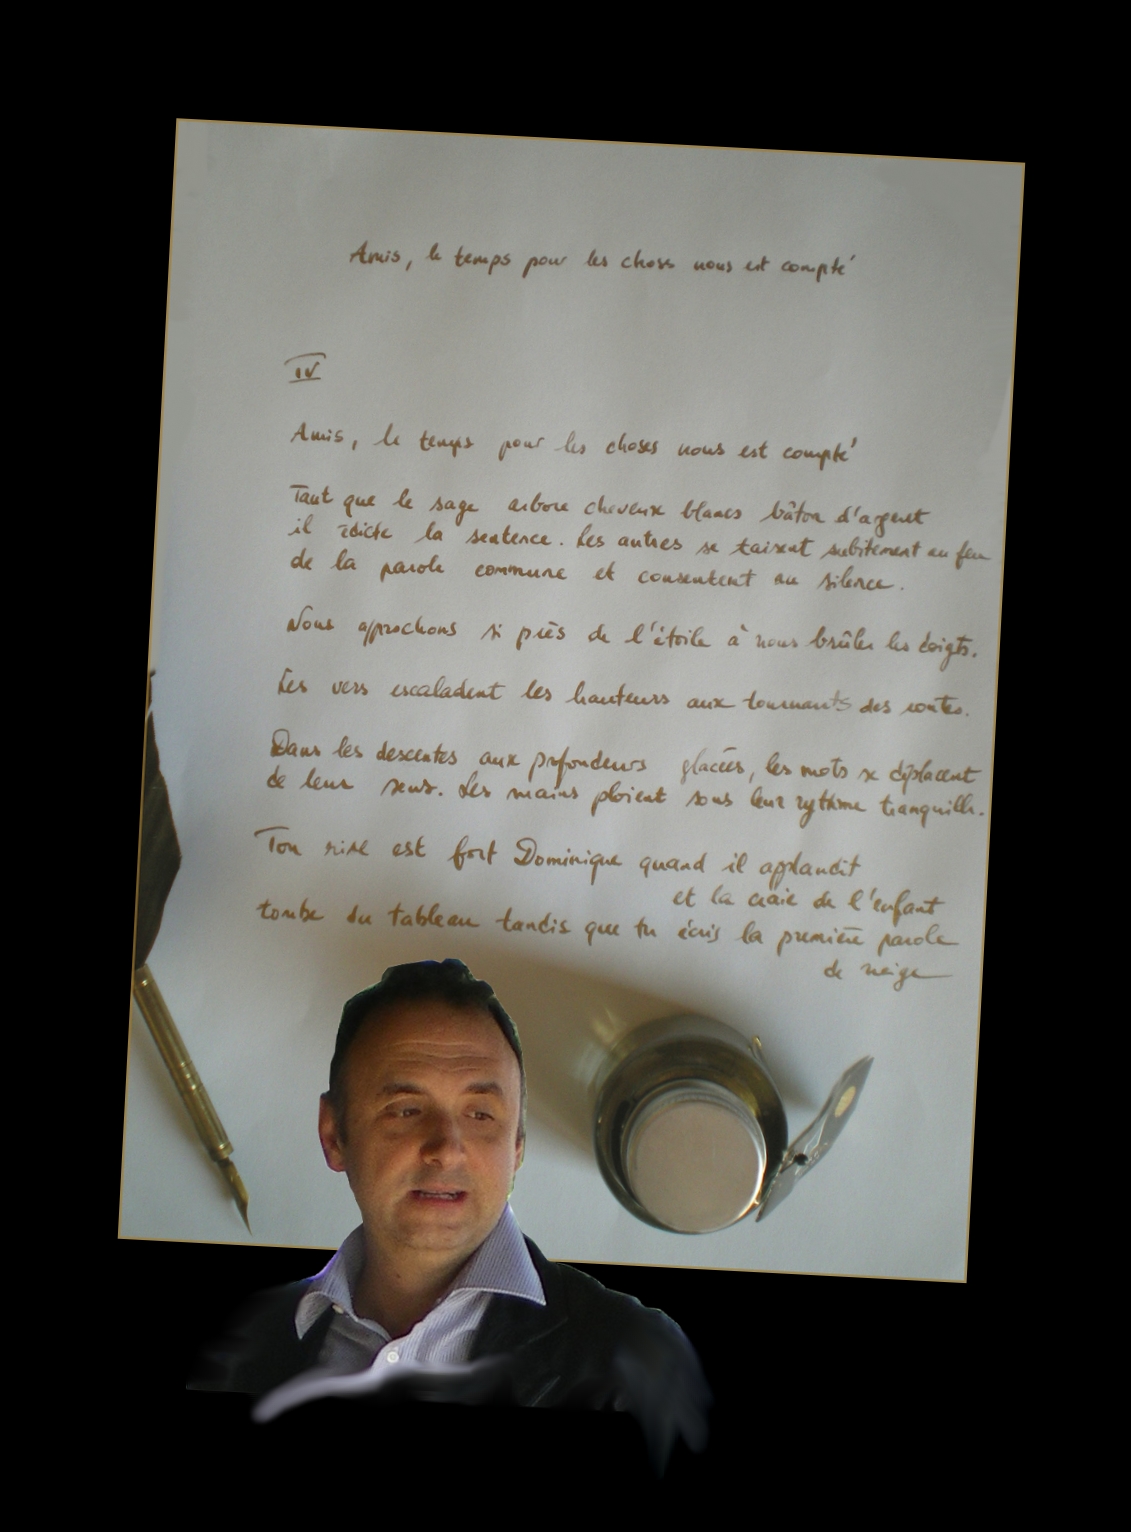 Amis, le temps pour les choses nous est compté
IV
Amis, le temps pour les choses nous est compté
Tant que le sage arbore cheveux blancs bâton d'argent
il édicte la sentence. Les autres se taisent subitement au feu
de la parole commune et consentent au silence.
Nous approchons si près de l'étoile à nous brûler les doigts.
Les vers escaladent les hauteurs aux tournants des routes.
Dans les descentes aux profondeurs glacées, les mots se déplacent
de leur sens. Les mains ploient sous leur rythme tranquille.
Ton rire est fort Dominique quand il applaudit
et la craie de l'enfant
tombe du tableau tandis que tu écris la première parole
de neige